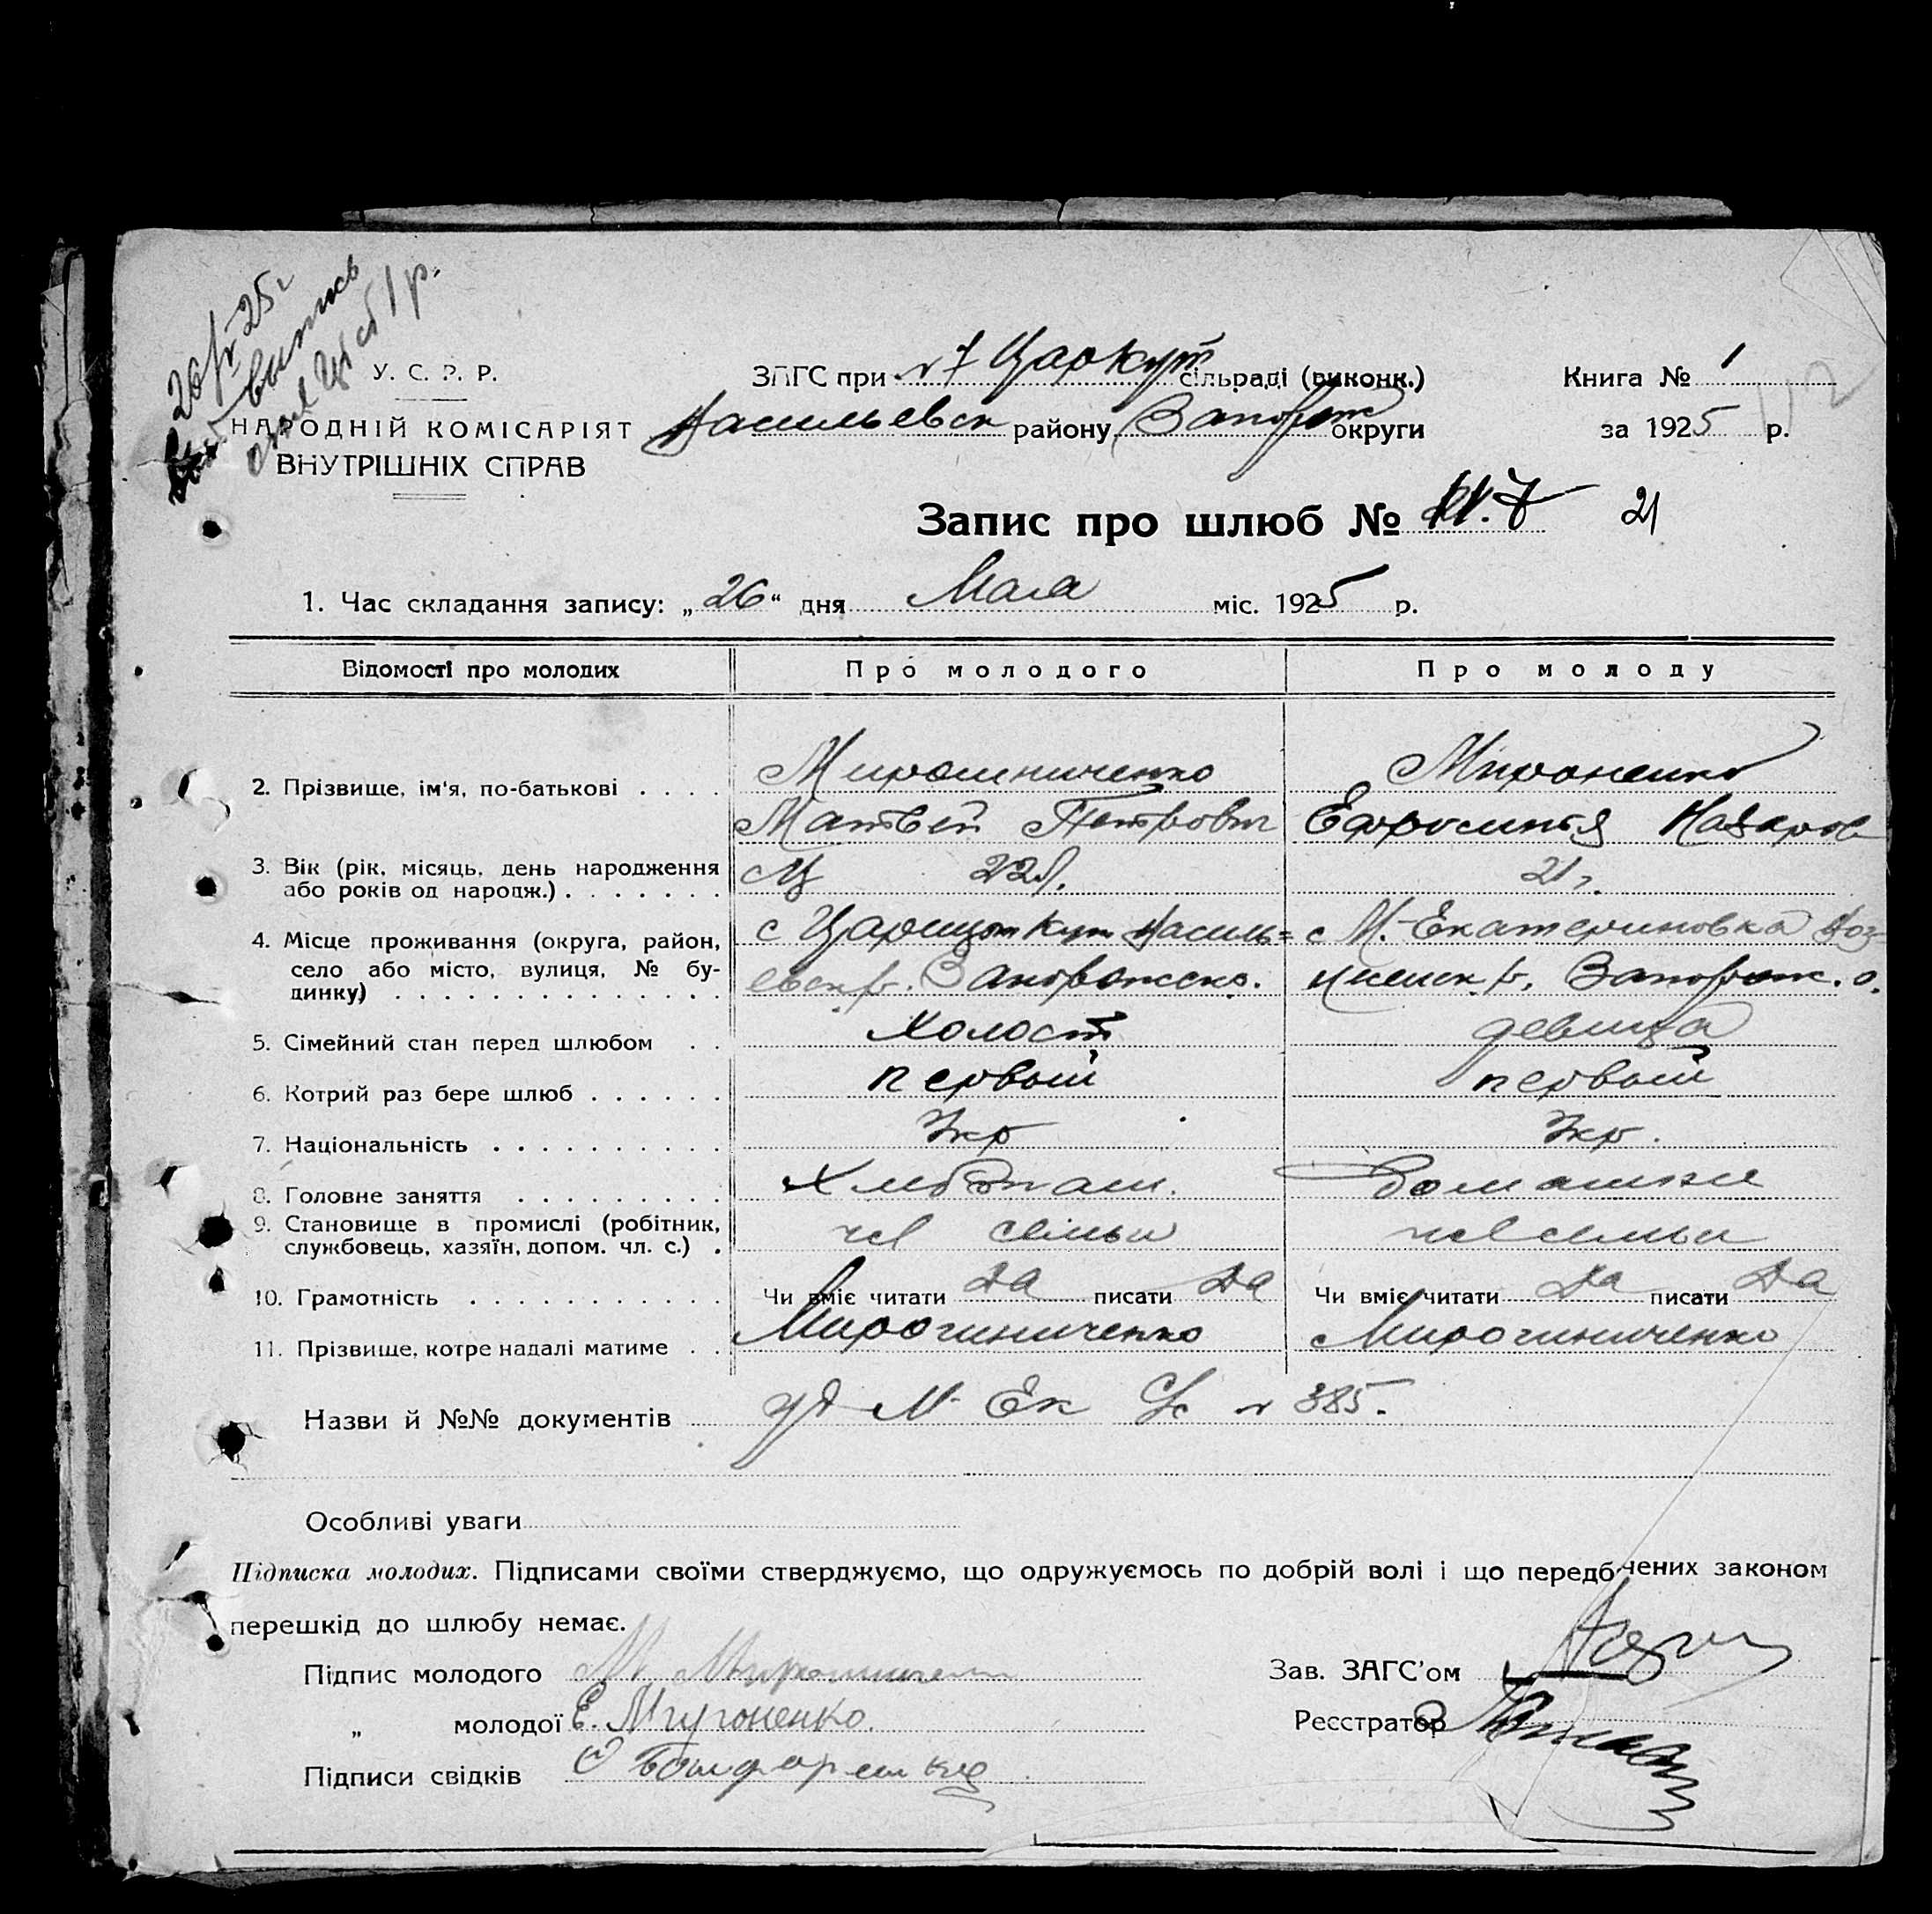 26/V 25 г
выпись
У. С. Р. Р.
НАРОДНІЙ КОМІСАРІЯТ
ВНУТРІШНІХ СПРАВ
ЗАГС при №7 ЦарКут сільраді (виконк.)
Васильевск району Запорож округи
Книга № 1
за 1925 р.
Запис про шлюб № 7 21
1. Час складання запису: „26“ дня Мая міс. 1925 р.
Відомості про молодих Про молодого Про молоду
2. Прізвище, ім'я, по-батькові . . . . Мирошниченко Мироненко
Матвей Петрович Ефросиния Назаров
3. Вік (рік, місяць, день народження
або років од народж.) . . . . . . . 22 л. 21 г.
4. Місце проживання (округа, район, с Царицын Кут Василь= с М.-Екатериновка
село або місто, вулиця, № бу-
динку) . . . . . . . . . . . . . . евск р. Запорожско. р. Запорож. о.
5. Сімейний стан перед шлюбом . . Холост девица
6. Котрий раз бере шлюб . . . . . . первый первый
7. Національність . . . . . . . . . . Укр Укр.
8. Головне заняття . . . . . . . . . Хлебопаш. Домашние
9. Становище в промислі (робітник,
службовець, хазяїн, допом. чл. с.) . чл семьи чл семьи
10. Грамотність . . . . . . . . . . . Чи вміє читати Да писати Да Чи вміє читати Да писати Да
11. Прізвище, котре надалі матиме . . Мирошниченко Мирошниченко
Назви й №№ документів уд М. Ек С/с № 385.
Особливі уваги
Підписка молодих. Підписами своїми стверджуємо, що одружуємось по добрій волі і що передбачених законом
перешкід до шлюбу немає.
Підпис молодого М Мирошниченко
Зав. ЗАГС'ом
„ молодої Е. Мироненко.
Реєстратор
Підписи свідків